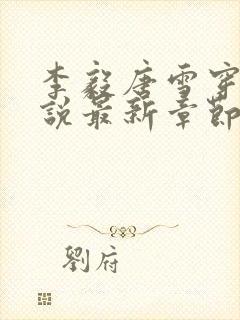 李毅唐雪穿
說最新章節
劉府